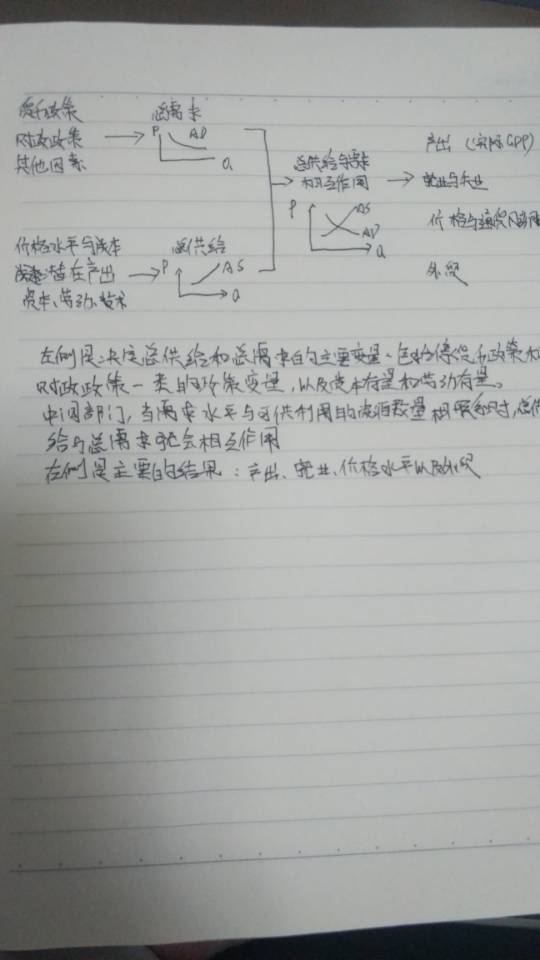 货币政策 总需求
财政政策 P AD 产出（实际GDP）
其他因素 Q 总供给与需求
相互作用 就业与失业
P AS
价格水平与成本 总供给 AD 价格与通货膨胀
潜在产出 P AS Q
资本、劳动、技术 Q 外贸
左侧是决定总供给和总需求的主要变量、包括像货币政策和
财政政策一类的政策变量，以及资本存量和劳动存量。
中间部门，当需求水平与可供利用的资源数量相 时，总供
给与总需求 会相互作用
右侧是主要的结果：产出、就业、价格水平以及外贸